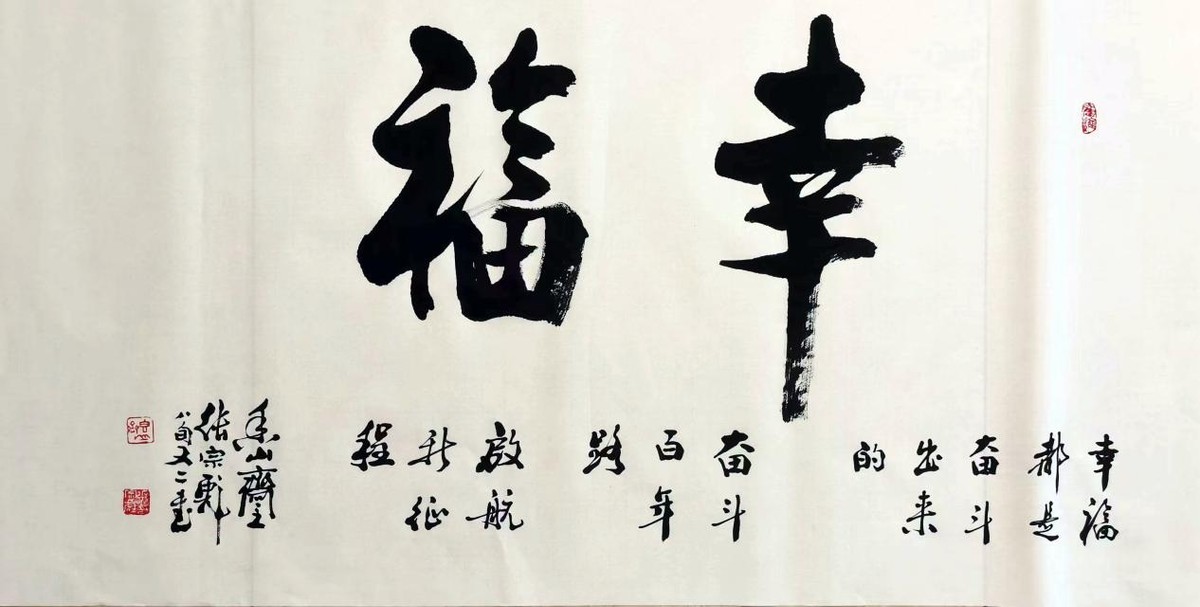 幸福
幸福
都是
奋斗
出来
的
奋斗
百年
路
啟航
新征
程
香山齋
张宗
八旬又二書